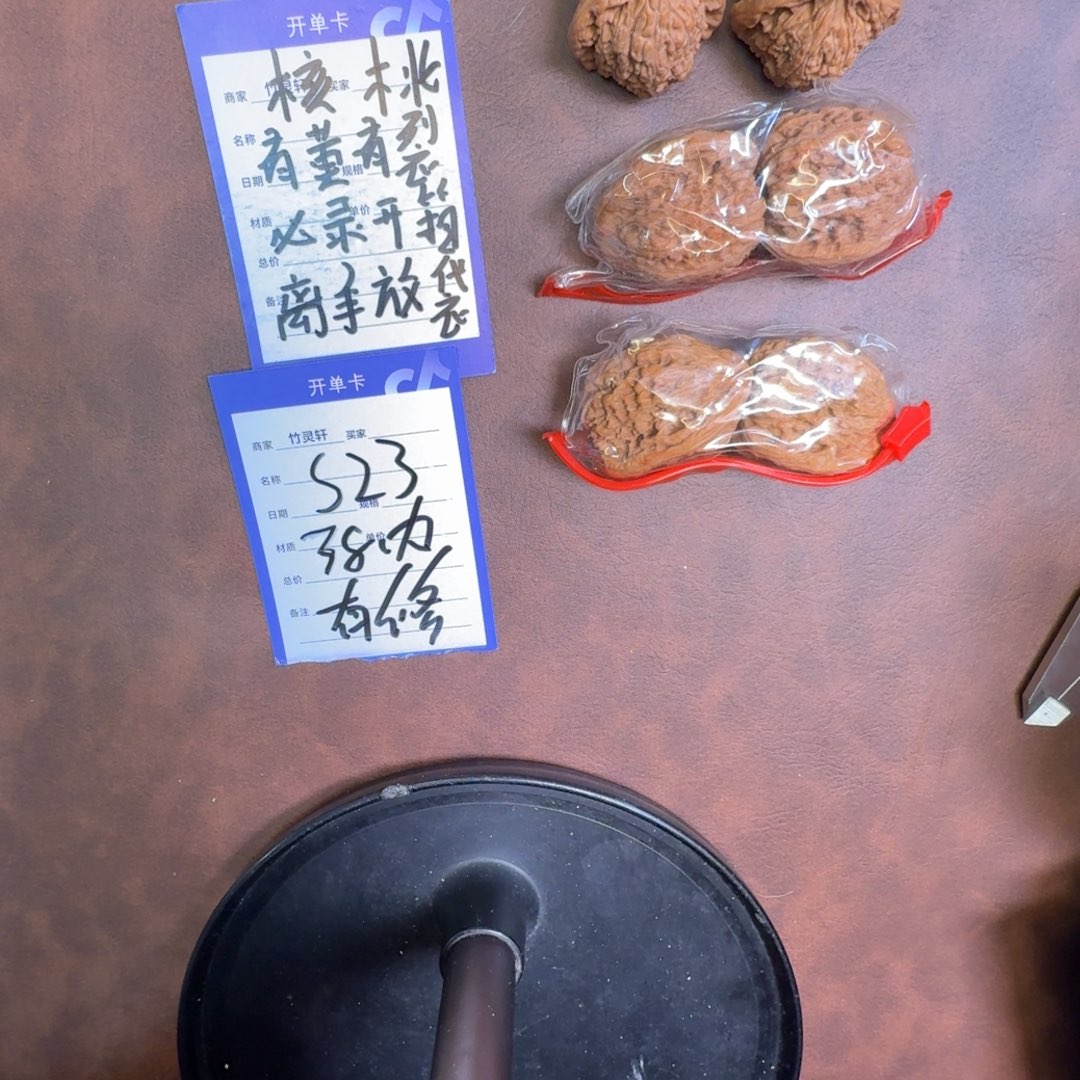 开单卡
商家 竹灵轩 买家
名称
日期 规格
材质 单价
总价
备注
核桃
有董有裂
必录开
离手放
开单卡
商家 竹灵轩 买家
名称
日期 规格
材质 单价
总价
备注
S23
有修